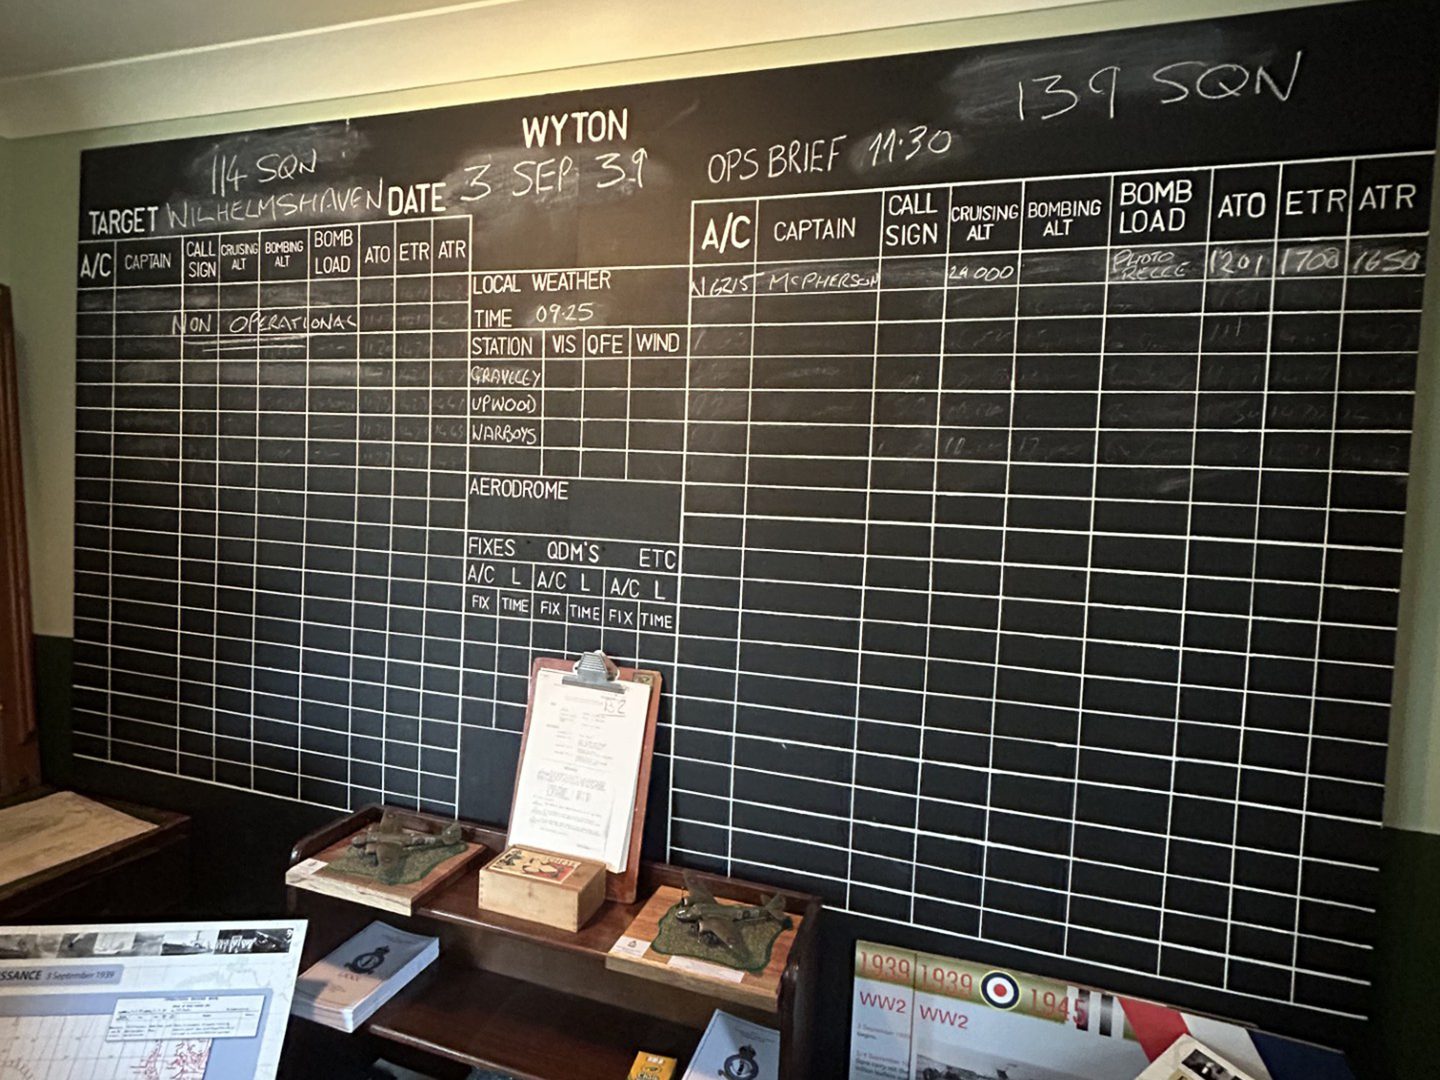 139 SQN
WYTON
114 SQN
TARGET WILHELMSHAVEN DATE 3 SEP 39 OPS BRIEF 11.30
A/C CAPTAIN CALL SIGN CRUISING ALT BOMBING ALT BOMB LOAD ATO ETR ATR
NON OPERATIONAL
LOCAL WEATHER
TIME 09.25
STATION VIS QFE WIND
GRAVELEY
UPWOOD
WARBOYS
AERODROME
FIXES QDM'S ETC
A/C L A/C L A/C L
FIX TIME FIX TIME FIX TIME
A/C CAPTAIN CALL SIGN CRUISING ALT BOMBING ALT BOMB LOAD ATO ETR ATR
N6215 MCPHERSON 24000 PHOTO RECCE 1201 1708 1650
132
SSANCE 3 September 1939
1939 1939 1945
WW2 WW2